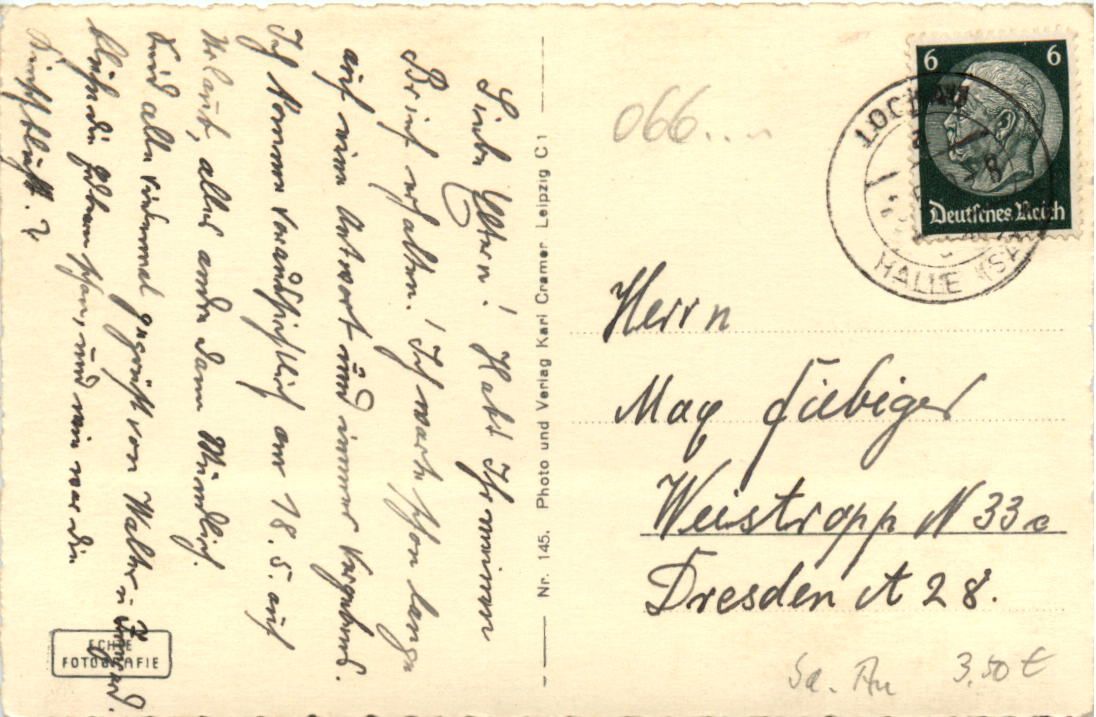 Liebe Eltern! Habt Ihr meinen
Brief erhalten! Ich warte schon lange
auf eine Antwort und immer vergebens.
Ich komme voraussichtlich am 18. 5. auf
Urlaub, alles andere dann Mündlich.
Seid alle vielmal gegrüßt von Walter u
blühen die schon, und wie war die
Nr. 145. Photo und Verlag Karl Cramer Leipzig C 1
ECHTE
FOTOGRAFIE
066....
6 6
Deutsches Reich
LOCHAU
HALLE (SA
Herrn
Max Fiebiger
Weistropp N 33c
Dresden A 28.
Sa. An 3,50 €